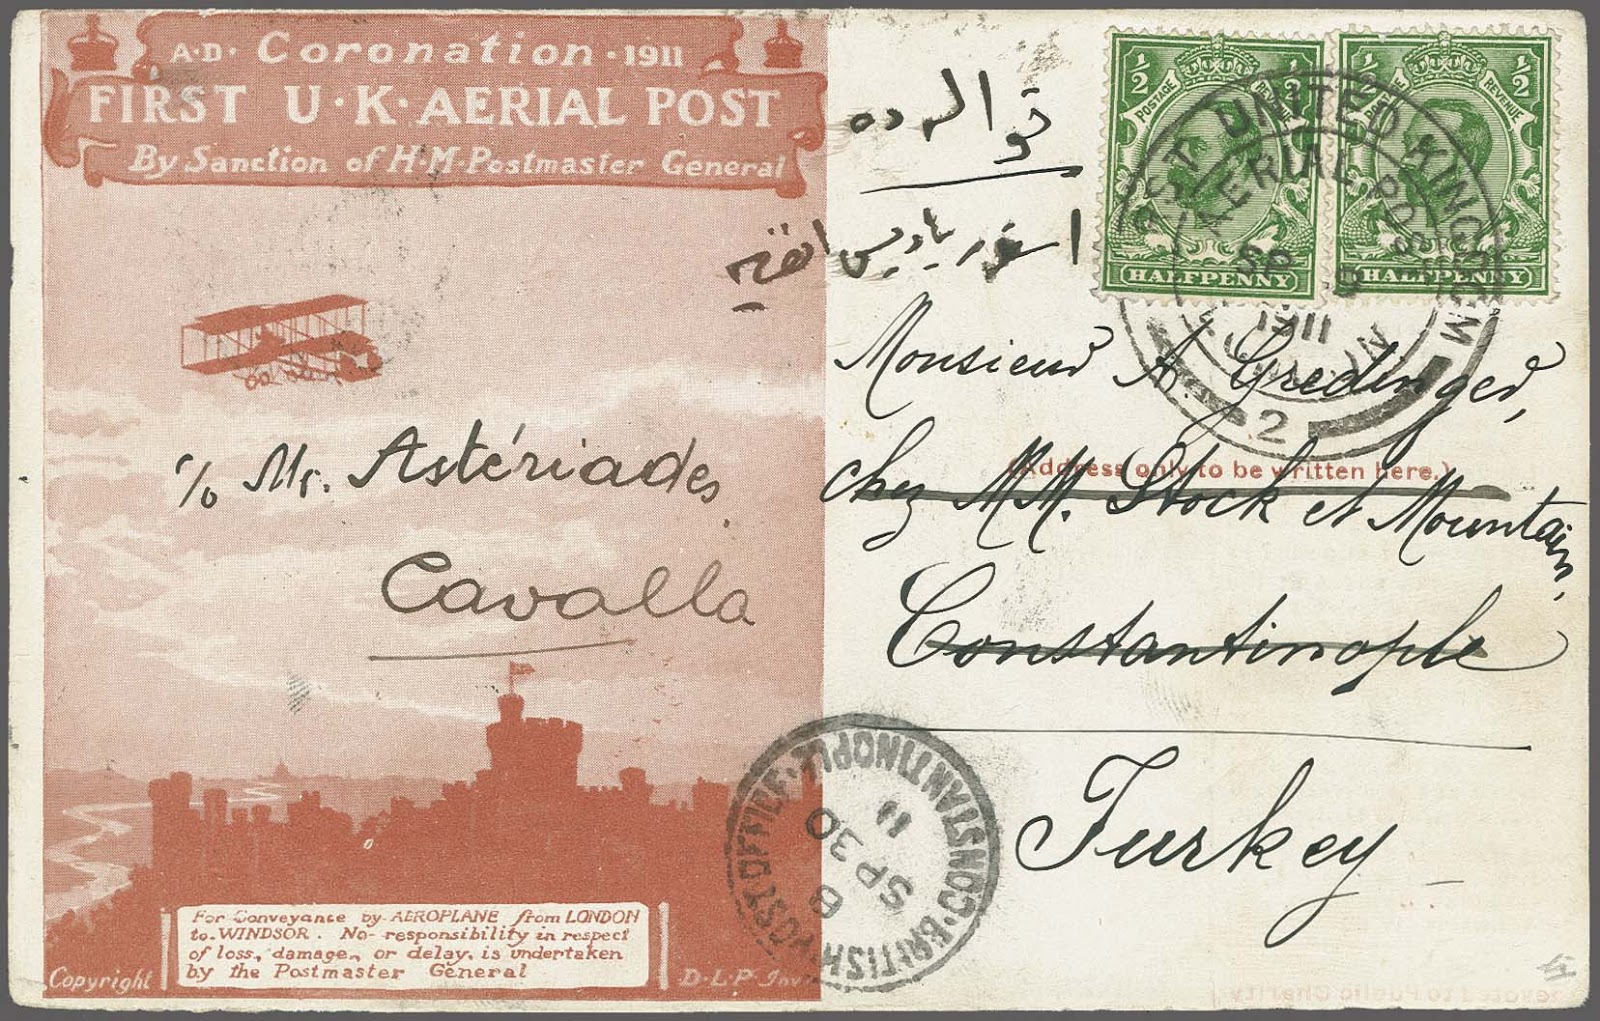 A·D· Coronation · 1911
FIRST U·K·AERIAL POST
By Sanction of H·M·Postmaster General
c/o Mr. Astériades
Cavalla
For Conveyance by AEROPLANE from LONDON
to WINDSOR. No responsibility in respect
of loss, damage, or delay, is undertaken
by the Postmaster General
Copyright
D·L·P·Inv
½ ½
POSTAGE REVENUE
HALFPENNY
½ ½
POSTAGE REVENUE
HALFPENNY
UNITED KINGDOM
AERIAL POST
SP
1911
LONDON
2
Monsieur A. Gredinger,
(Address only to be written here.)
chez MM. Stock et Mountain,
Constantinople
Turkey
BRITISH POST OFFICE · CONSTANTINOPLE
B
SP 30
11